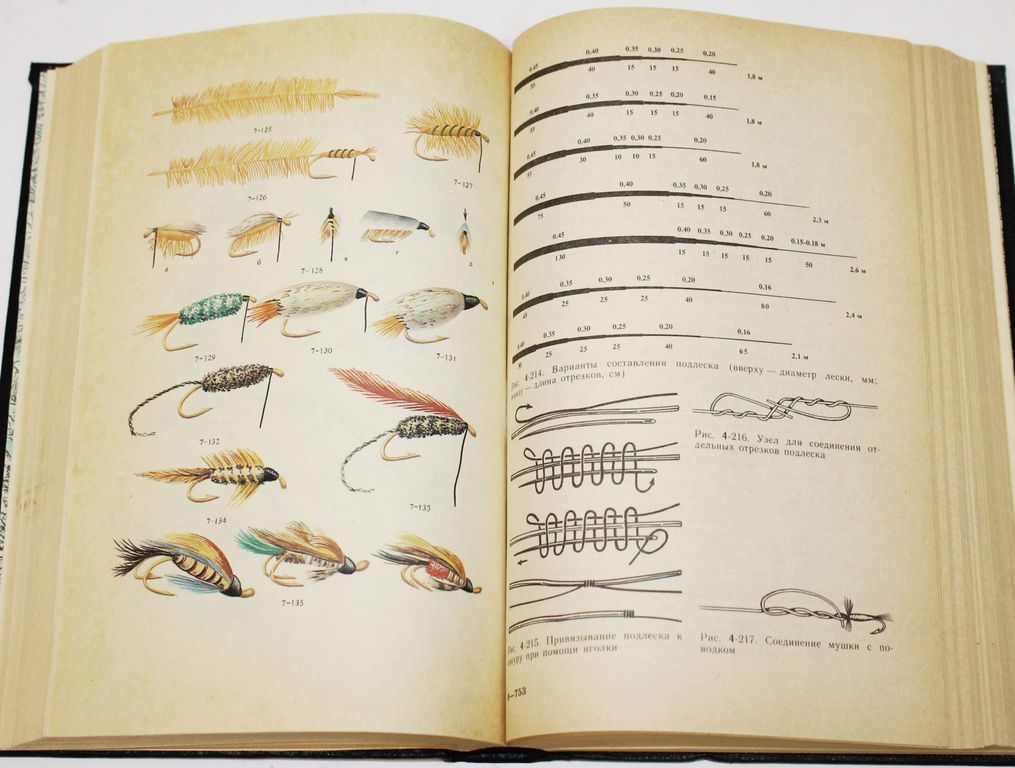 7-125
7-126
7-127
а б в г д
7-128
7-129
7-130
7-131
7-132
7-133
7-134
7-135
0,45 0,40 0,35 0,30 0,25 0,20
55 40 15 15 15 40 1,8 м
0,40 0,35 0,30 0,25 0,20 0,15
55 40 15 15 15 40 1,8 м
0,45 0,40 0,35 0,30 0,25 0,20
55 30 10 10 15 60 1,8 м
0,45 0,40 0,35 0,30 0,25 0,20
75 50 15 15 15 60 2,3 м
0,45 0,40 0,35 0,30 0,25 0,20 0,15-0,18 м
130 15 15 15 15 15 50 2,6 м
0,40 0,35 0,30 0,25 0,20 0,16
45 25 25 25 40 80 2,4 м
0,40 0,35 0,30 0,25 0,20 0,16
30 25 25 25 40 65 2,1 м
Рис. 4-214. Варианты составления подлеска (вверху — диаметр лески, мм;
внизу — длина отрезков, см)
Рис. 4-216. Узел для соединения от-
дельных отрезков подлеска
Рис. 4-215. Привязывание подлеска к
шнуру при помощи иголки
Рис. 4-217. Соединение мушки с по-
водком
9—753